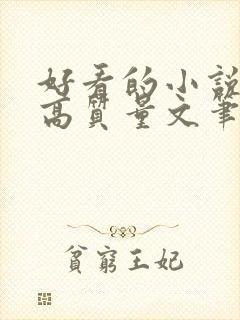 好看的小說
高質量文筆
貧窮王妃